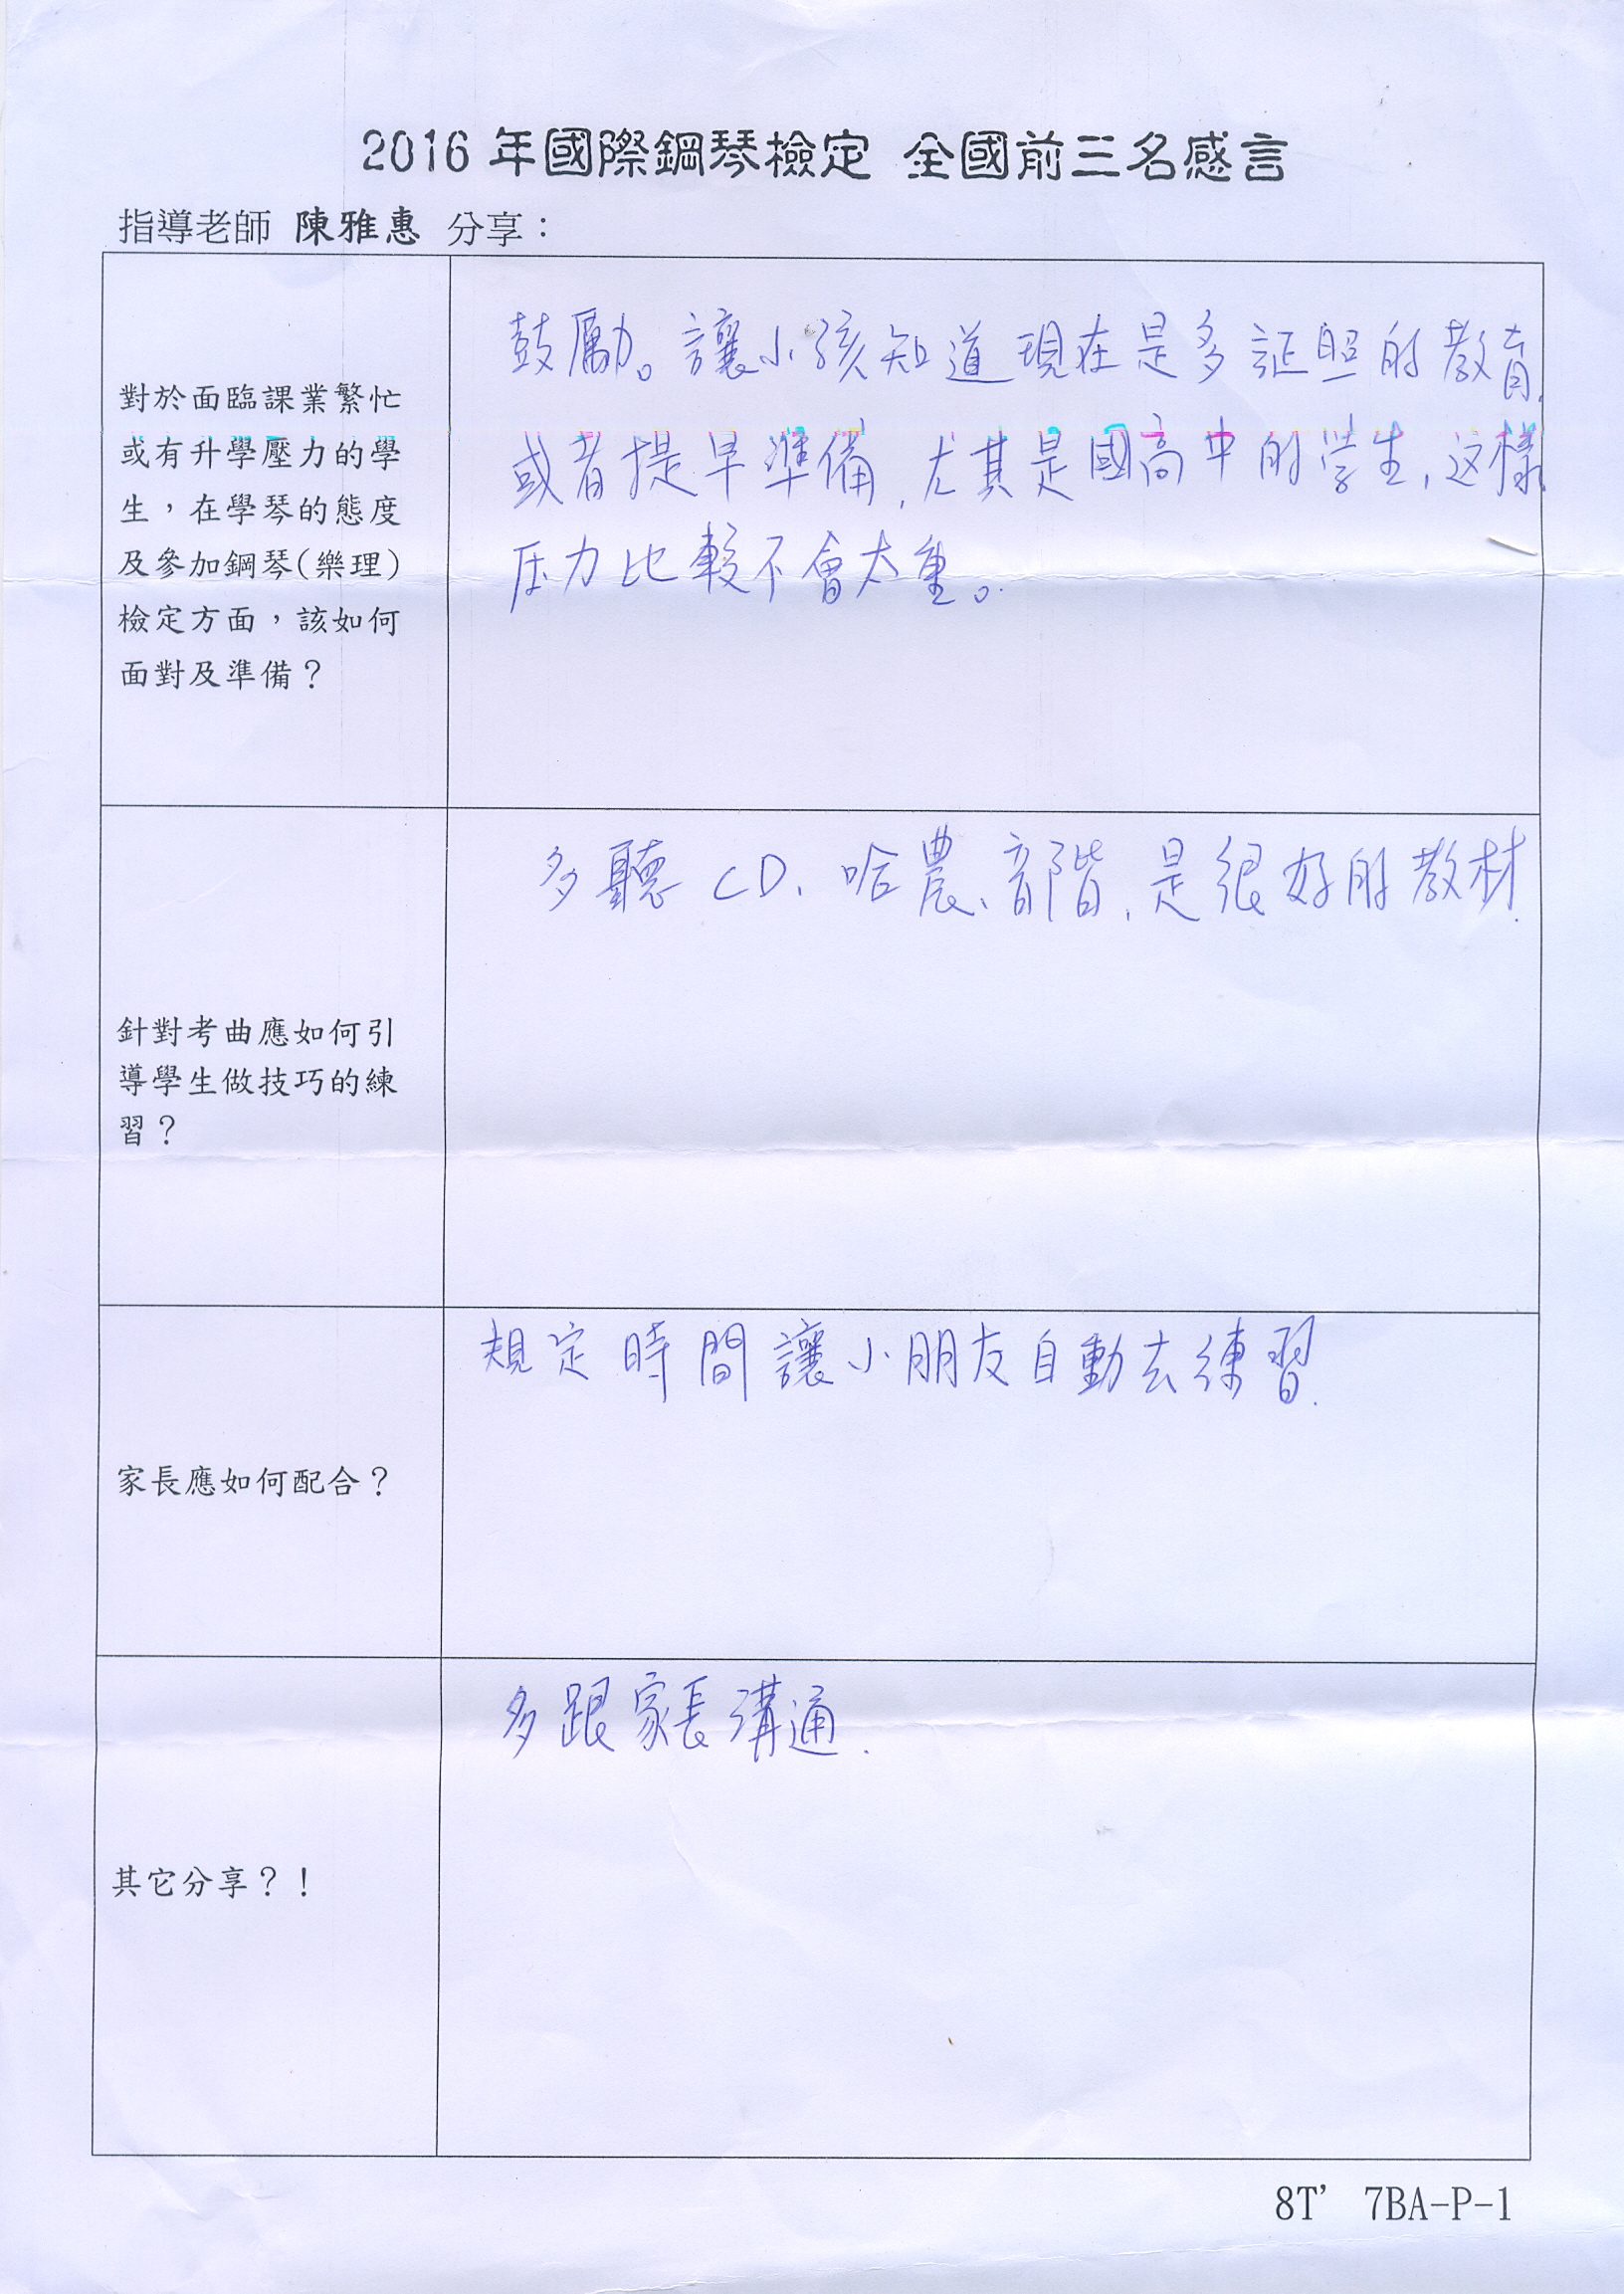 2016 年國際鋼琴檢定 全國前三名感言
指導老師 陳雅惠 分享：
對於面臨課業繁忙
或有升學壓力的學
生，在學琴的態度
及參加鋼琴(樂理)
檢定方面，該如何
面對及準備？
鼓勵。讓小孩知道現在是多証照的教育.
或者提早準備,尤其是國高中的学生,这樣
压力比較不會太重。
針對考曲應如何引
導學生做技巧的練
習？
多聽 CD、哈農、音階,是很好的教材.
家長應如何配合？
規定時間讓小朋友自動去練習.
其它分享？！
多跟家長溝通.
8T' 7BA-P-1